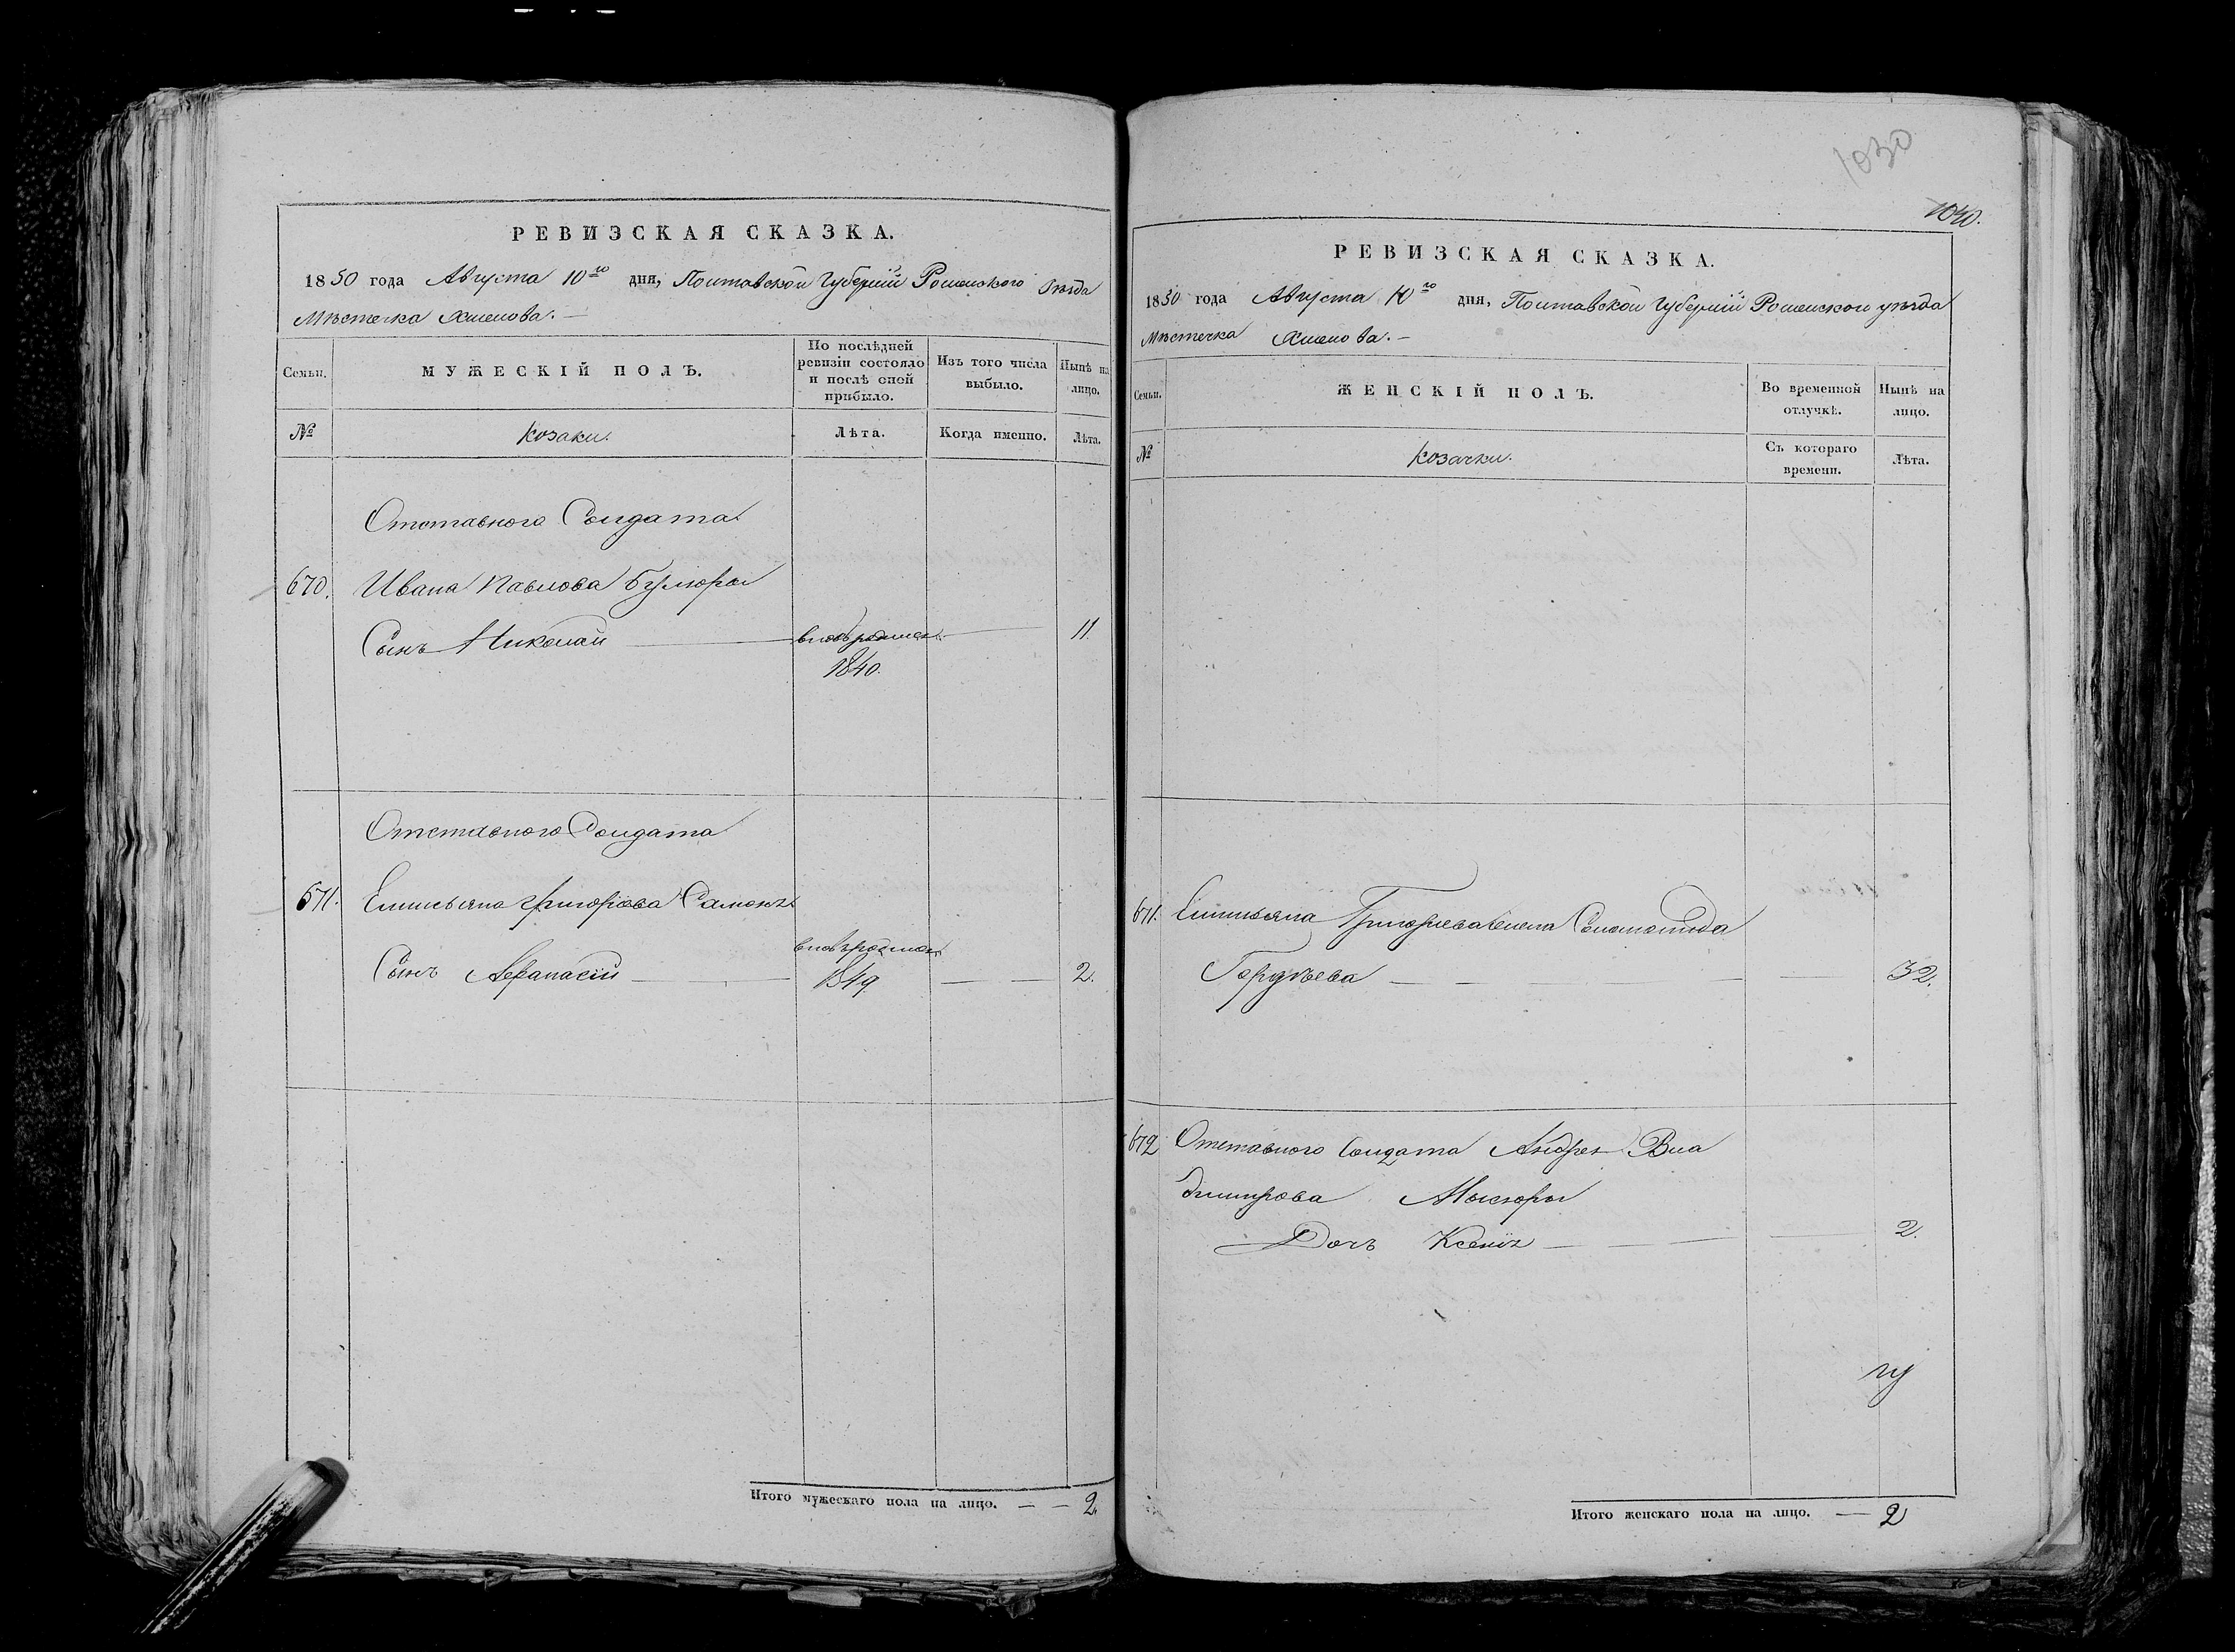 РЕВИЗСКАЯ СКАЗКА.
1850 года Августа 10го дня, Полтавской Губерніи Роменского уѣзда
Мѣстечка Смелова.
Семьи.
МУЖЕСКІЙ ПОЛЪ.
По послѣдней ревизіи состояло и послѣ оной прибыло.
Изъ того числа выбыло.
Нынѣ на лицо.
№
Козаки.
Лѣта.
Когда именно.
Лѣта.
Отставного Солдата
670. Ивана Павлова
Сынъ Николай 11
1840.
Отставного Солдата
671. Емельяна Григорієва
Сынъ Афанасій 1849 2.
Итого мужескаго пола на лицо. — — 2.
1030
1030.
РЕВИЗСКАЯ СКАЗКА.
1850 года Августа 10го дня, Полтавской Губерніи Роменскои уѣзда
Мѣстечка Смелова.
Семьи.
ЖЕНСКІЙ ПОЛЪ.
Во временной отлучкѣ.
Нынѣ на лицо.
№
Козачки.
Съ котораго времени.
Лѣта.
671. Емельяна Григориева жена Соломонида
Гордѣева 32.
672 Отставного Солдата Андрея Вла
димирова
Дочь Ксенія 2.
Итого женскаго пола на лицо. — 2